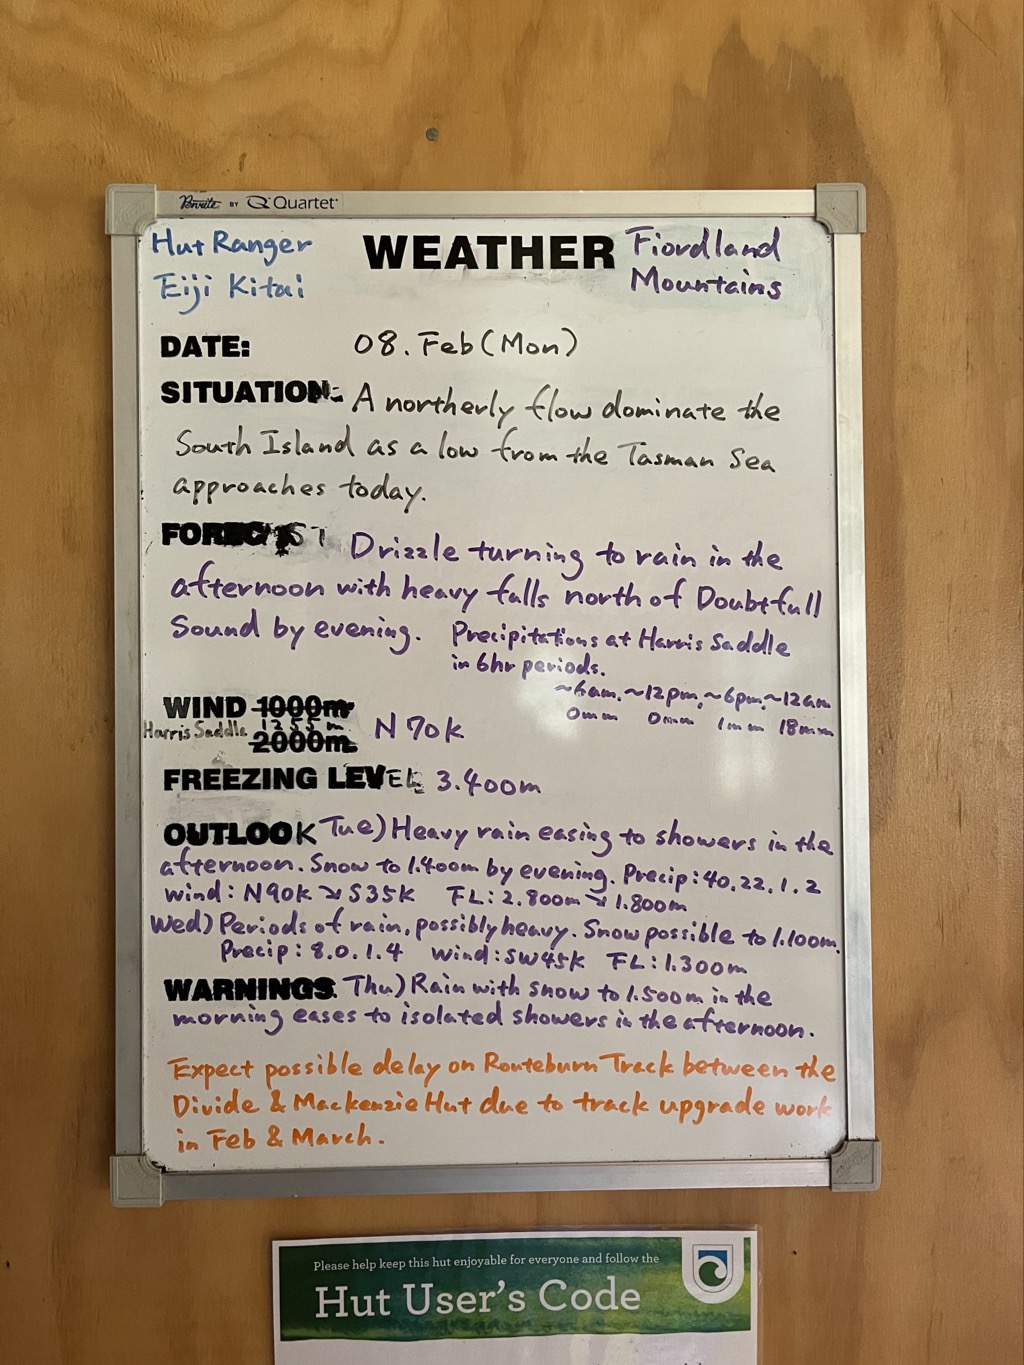 Penrite BY Quartet
Hut Ranger
Eiji Kitai
WEATHER
Fiordland
Mountains
DATE: 08. Feb (Mon)
SITUATION: A northerly flow dominate the
South Island as a low from the Tasman Sea
approaches today.
FORECAST Drizzle turning to rain in the
afternoon with heavy falls north of Doubtfull
Sound by evening. Precipitations at Harris Saddle
in 6hr periods.
~6am. ~12pm. ~6pm. ~12am
0mm 0mm 1mm 18mm
WIND 1000m
Harris Saddle 1255m N 70k
2000m
FREEZING LEVEL 3.400m
OUTLOOK Tue) Heavy rain easing to showers in the
afternoon. Snow to 1.400m by evening. Precip: 40.22.1.2
Wind: N90k ↘ S35k FL: 2.800m ↘ 1.800m
Wed) Periods of rain, possibly heavy. Snow possible to 1.100m.
Precip: 8.0.1.4 Wind: SW45k FL: 1.300m
WARNINGS Thu) Rain with snow to 1.500m in the
morning eases to isolated showers in the afternoon.
Expect possible delay on Routeburn Track between the
Divide & Mackenzie Hut due to track upgrade work
in Feb & March.
Please help keep this hut enjoyable for everyone and follow the
Hut User's Code